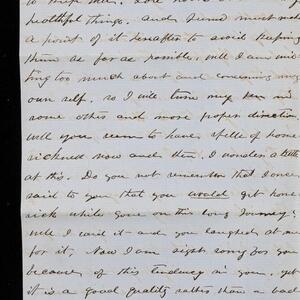 healthful things. and I must make
a point of it hereafter to avoid keeping
them as far as possible. well I am wri
ting too much about and concerning my
own self. so I will turn my pen in
some other and more proper direction
well you seem to have spells of home
sickness now and then. I wonder a little
at this. Do you not remember that I once
said to you that you would get home
sick while gone on this long Journey?
well I said it and you laughed at me
for it, Now I am right sorry for you
because of this tendency in you. yet
it is a good quality rather than a bad